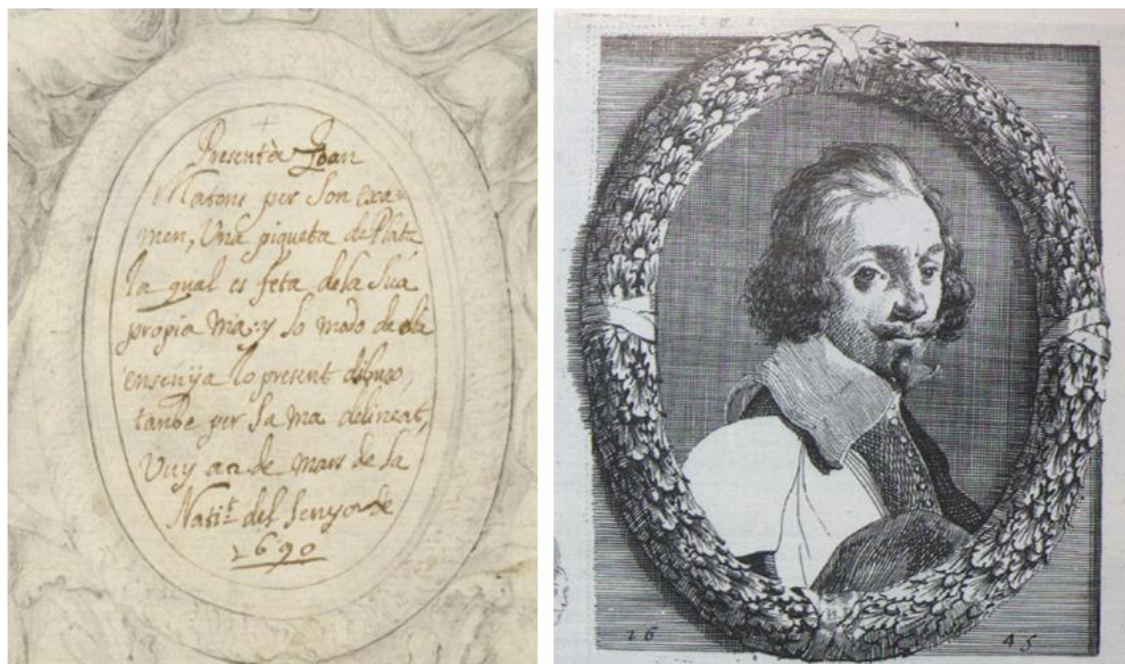 Presentà Joan
Matons per son exa=
men, Una piqueta de Plata
la qual es feta dela Sua
propia ma: y lo modo de ella
ensenÿa lo present dibuxo,
tambe per sa ma delineat,
Vuy als de mars de la
Nati.t del Senyor de
1690
16 45